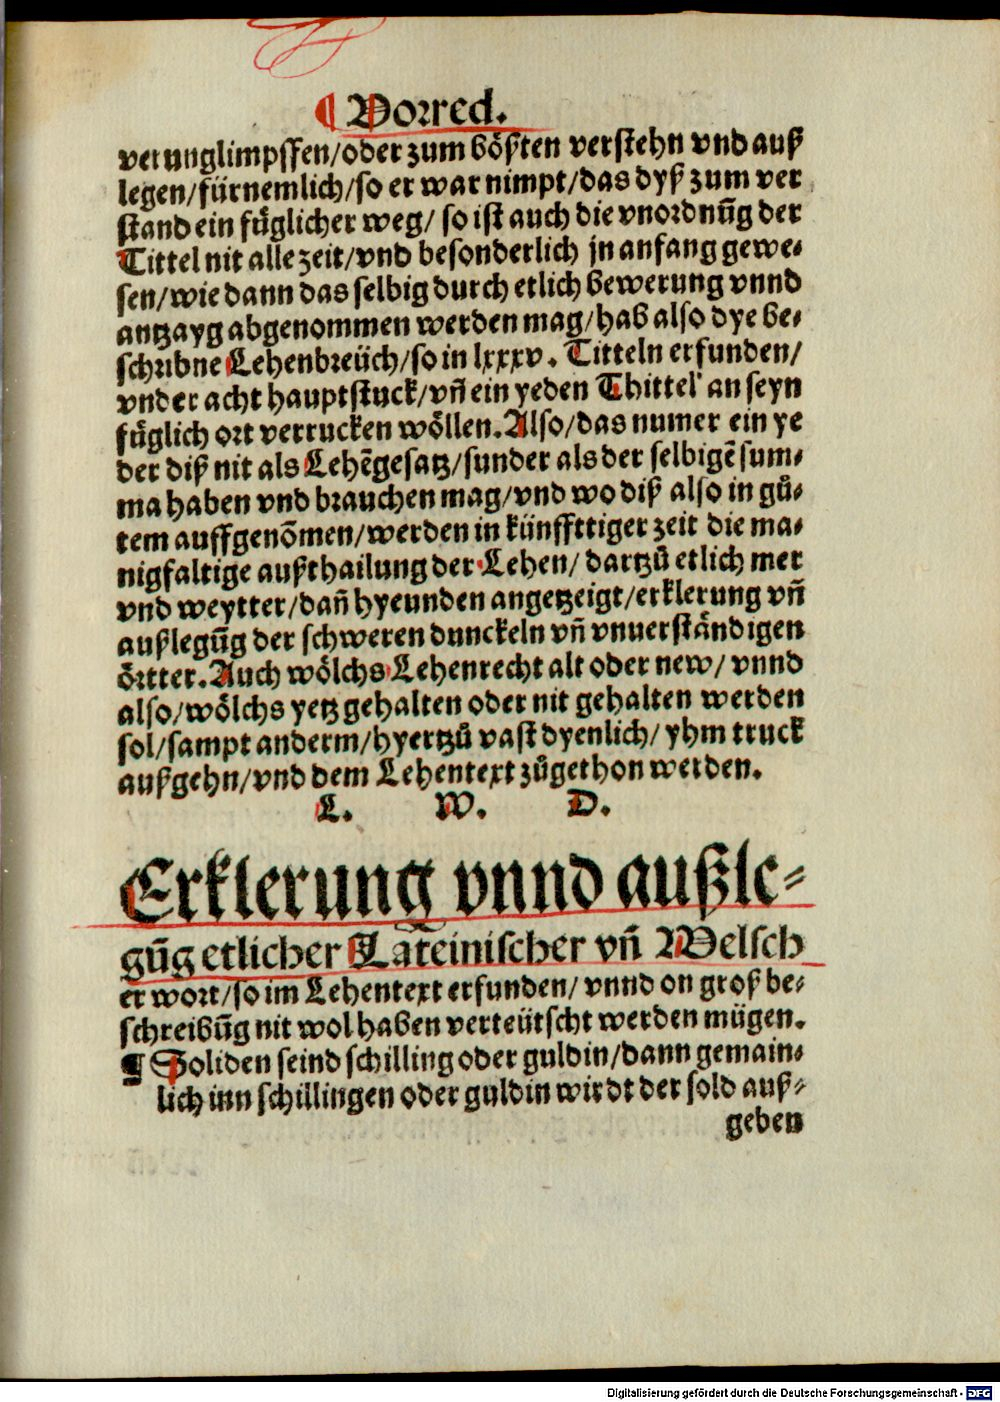 ¶ Vorred.
verunglimpffen/oder zum bösten verstehn vnd auß
legen/fürnemlich/so er war nimpt/das dyß zum ver
stand ein füglicher weg/ so ist auch die vnordnūg der
Tittel nit alle zeit/vnd besonderlich jn anfang gewe⸗
sen/wie dann das selbig durch etlich bewerung vnnd
antzayg abgenommen werden mag/hab also dye be⸗
schribne Lehenbreüch/so in lxxxv. Titteln erfunden/
vnder acht hauptstuck/vñ ein yeden Thittel an seyn
füglich ort verrucken wöllen. Also/das numer ein ye
der diß nit als Lehēgesatz/sunder als der selbigē sum⸗
ma haben vnd brauchen mag/vnd wo diß also in gů⸗
tem auffgenōmen/werden in künffttiger zeit die ma⸗
nigfaltige außthailung der Lehen/ dartzů etlich mer
vnd weytter/dañ hyeunden angetzeigt/erklerung vñ
außlegūg der schweren dunckeln vñ vnuerständigen
örtter. Auch wölchs Lehenrecht alt oder new/ vnnd
also/wölchs yetz gehalten oder nit gehalten werden
sol/sampt anderm/hyertzů vast dyenlich/ yhm truck
außgehn/vnd dem Lehentext zůgethon werden.
L. W. D.
Erklerung vnnd außle⸗
gūg etlicher Lateinischer vñ Welsch
er wort/so im Lehentext erfunden/ vnnd on groß be⸗
schreibūg nit wol haben verteütscht werden mügen.
¶ Soliden seind schilling oder guldin/dann gemain⸗
lich inn schillingen oder guldin wirdt der sold auß⸗
geben
Digitalisierung gefördert durch die Deutsche Forschungsgemeinschaft - DFG